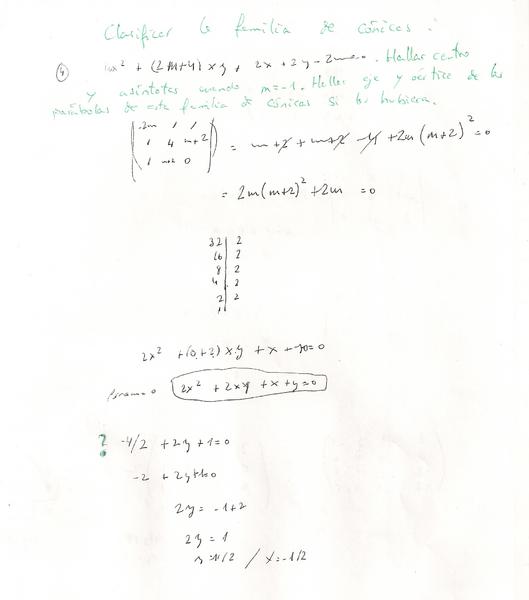 Clasificar la familia de cónicas:
4) 4x² + (2m+4)xy + 2x + 2y - 2m=0. Hallar centro
y asíntotas cuando m=-1. Hallar eje y vértice de las
parábolas de esta familia de cónicas si las hubiera.
| -2m 1 1 |
| 1 4 m+2 | = m+2 + m+2 - 4 + 2m(m+2)² = 0
| 1 m+2 0 |
= 2m(m+2)² + 2m = 0
32 | 2
16 | 2
8 | 2
4 | 2
2 | 2
1
2x² + (0+2)xy + x + y=0
2x² + 2xy + x + y=0
? -4/2 + 2y + 1=0
-2 + 2y+1=0
2y = -1+2
2y = 1
y=1/2 / x=-1/2